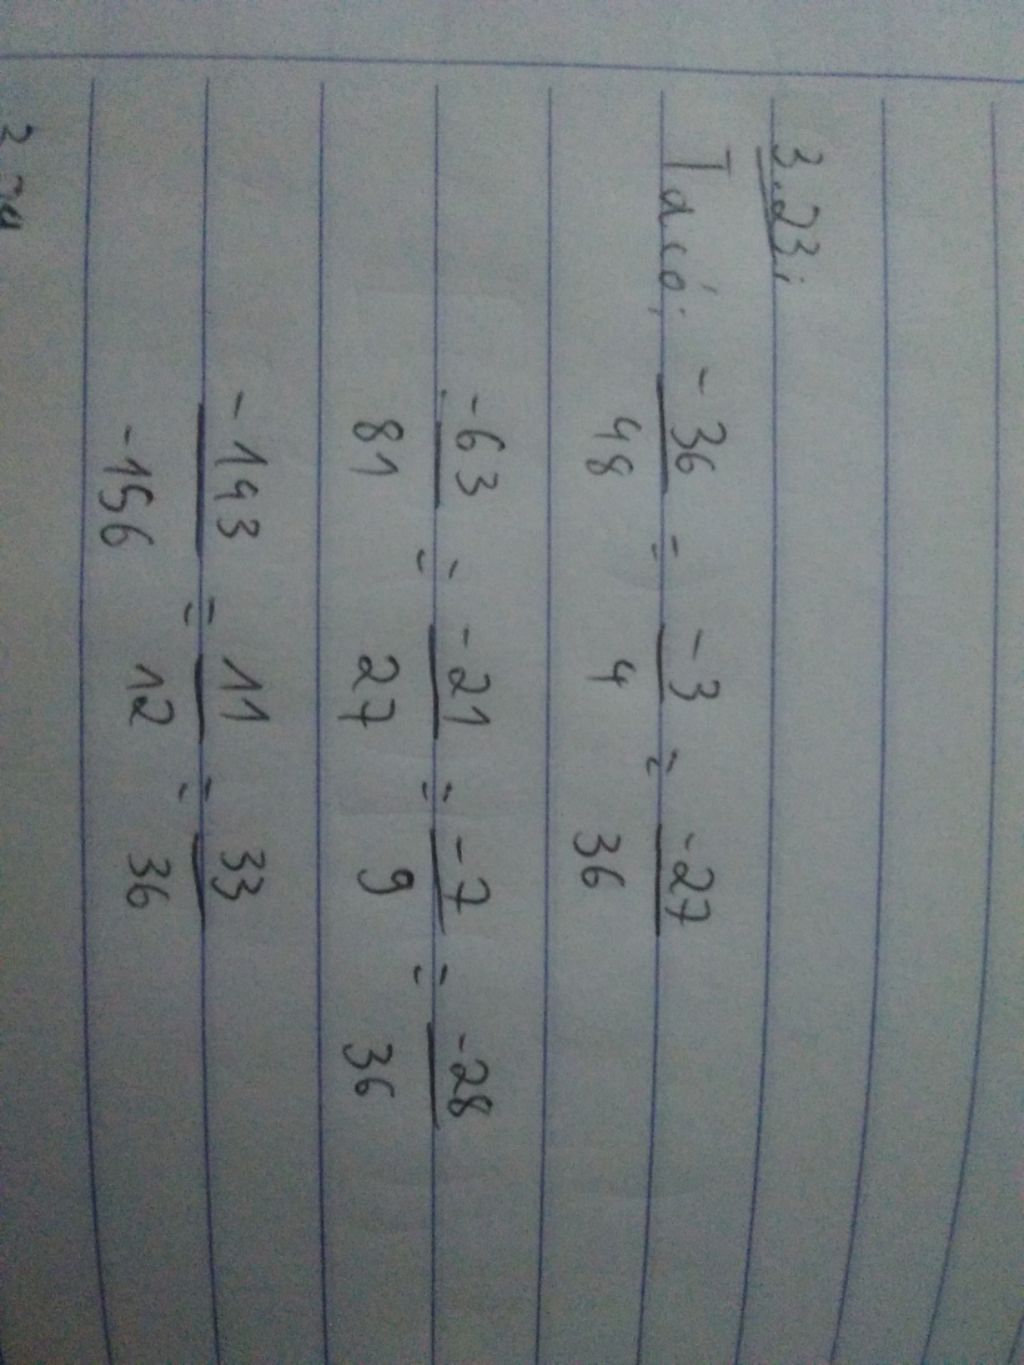 3.23:
Ta có: -36/48 = -3/4 = -27/36
-63/81 = -21/27 = -7/9 = -28/36
-143/-156 = 11/12 = 33/36